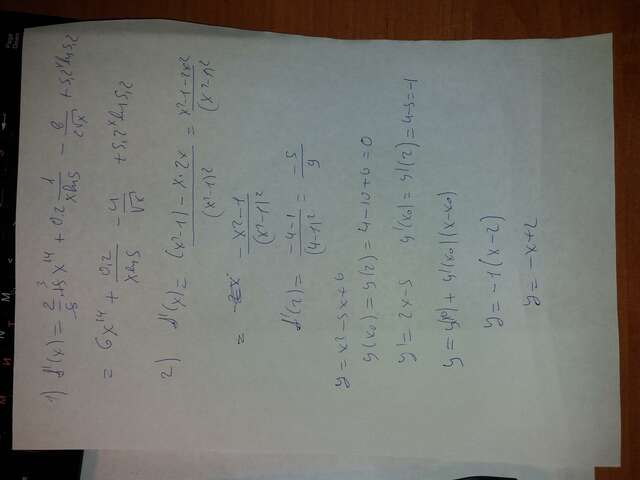 1) f'(x) = 2/5 · 15 x^14 + 0,2 1/(x ln5) - 8/(2√x) + 5,2^x ln5,2
= 6x^14 + 0,2/(x ln5) - 4/√x + 5,2^x ln5,2
2) f'(x) = ((x²-1) - x·2x)/(x²-1)² = (x²-1-2x²)/(x²-1)²
= (-x²-1)/(x²-1)²
f'(2) = (-4-1)/(4-1)² = -5/9
y = x² - 5x + 6
y(x₀) = y(2) = 4 - 10 + 6 = 0
y' = 2x - 5 y'(x₀) = y'(2) = 4-5 = -1
y = y(x₀) + y'(x₀)(x-x₀)
y = -1(x-2)
y = -x+2